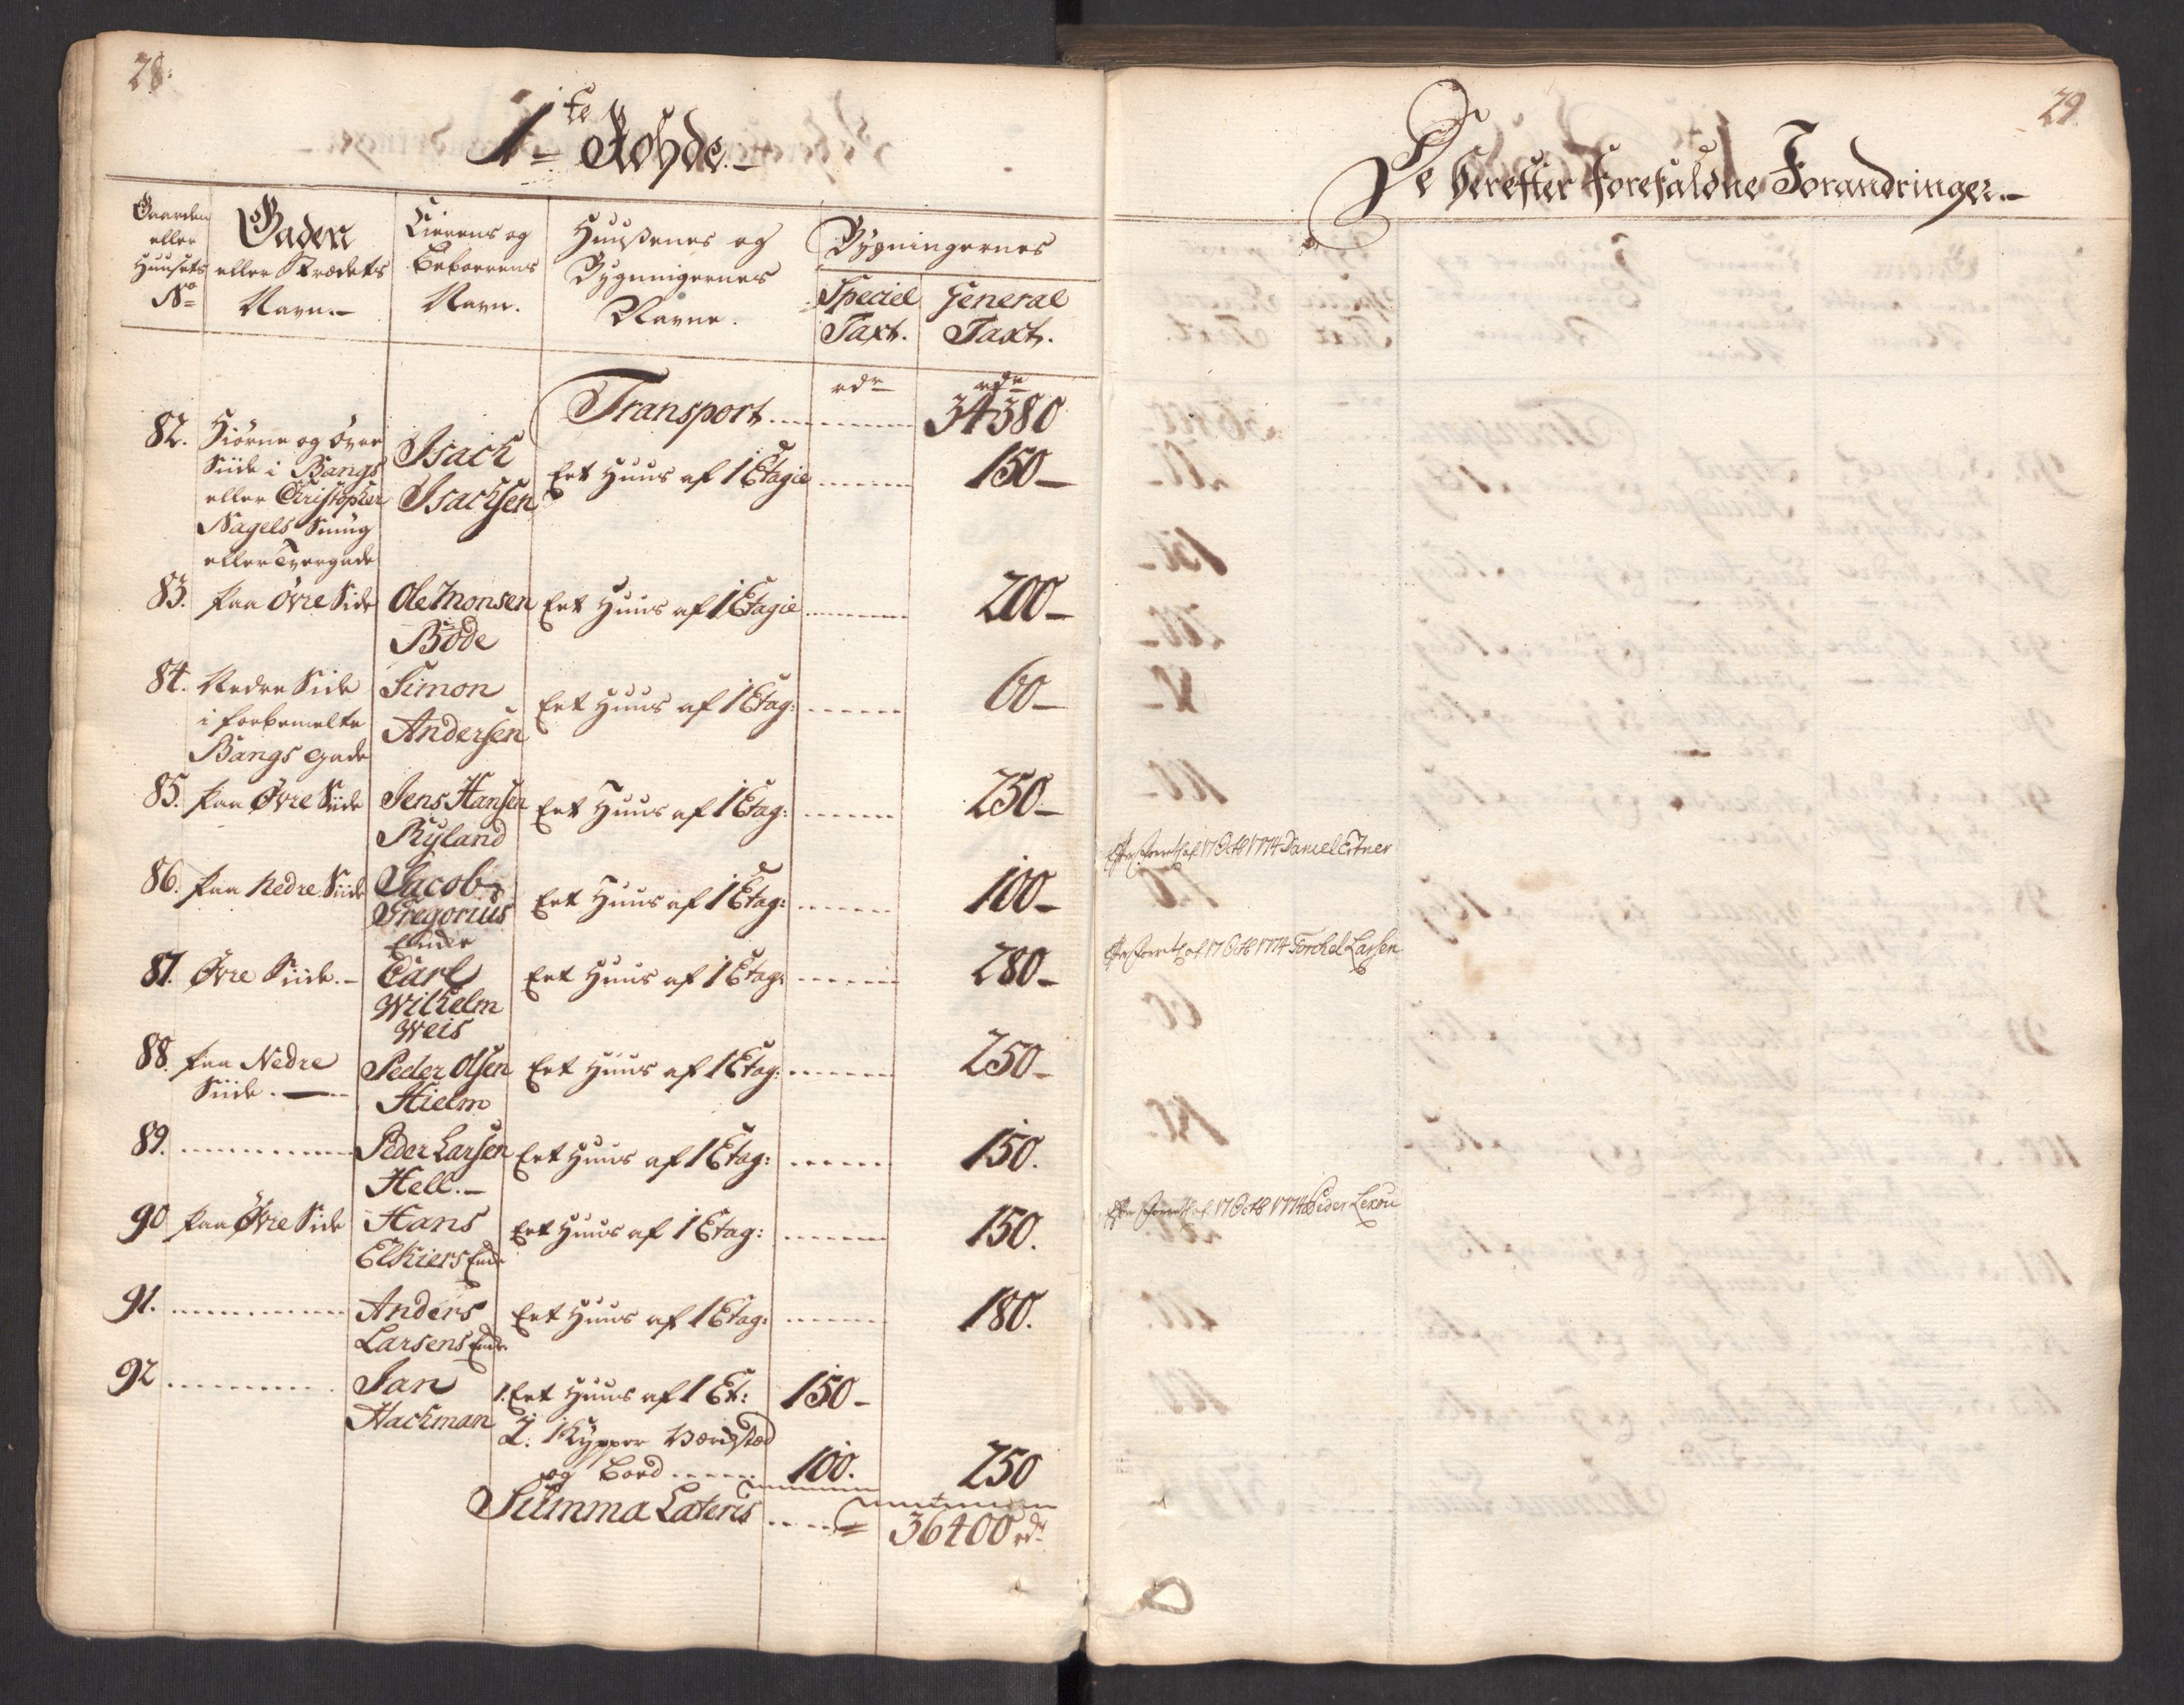 28.
1te Rohde.
Gaarden eller Huusets No
Gaden eller Strædets Navn.
Eierens og Beboerens Navn.
Huusenes og Bygningernes Navne.
Bygningernes
Speciel Taxt.
General Taxt.
rdr rdr
Transport 34380
82. Hiørne og Øvre Siide i Bangs eller Christopher Nagels Smug eller Tvergade Isach Isachsen Eet Huus af 1 Etagie 150
83. paa Øvre Side Ole Monsen Bode Eet Huus af 1 Etagie 200
84. Nedre Side i forbemelte Bangs Gade Simon Andersen Eet Huus af 1 Etag: 60
85. paa Øvre Siide Jens Hansen Ryland Eet Huus af 1 Etag: 250
86. paa Nedre Siide Jacob Gregorius Enke Eet Huus af 1 Etag: 100
87. Øvre Siide. Carl Wilhelm Weis Eet Huus af 1 Etag: 280
88. paa Nedre Siide. Peder Olsen Hielm Eet Huus af 1 Etag: 250
89. Peder Larsen Hell. Eet Huus af 1 Etag: 150.
90 paa Øvre Side Hans Elkiers Enke Eet Huus af 1 Etag: 150.
91. Anders Larsens Enke Eet Huus af 1 Etag: 180.
92 Jan Hackman 1. Eet Huus af 1 Et: 150
2. 1 Kypper Værksted og Boed 100. 250
Summa Lateris 36400 rdr
29.
De herefter forefaldne Forandringer.
af 17 Octb 1774 Daniel Ertner
af 17 Octb 1774 Torchel Larsen
af 17 Octb 1774 Peder Lexou